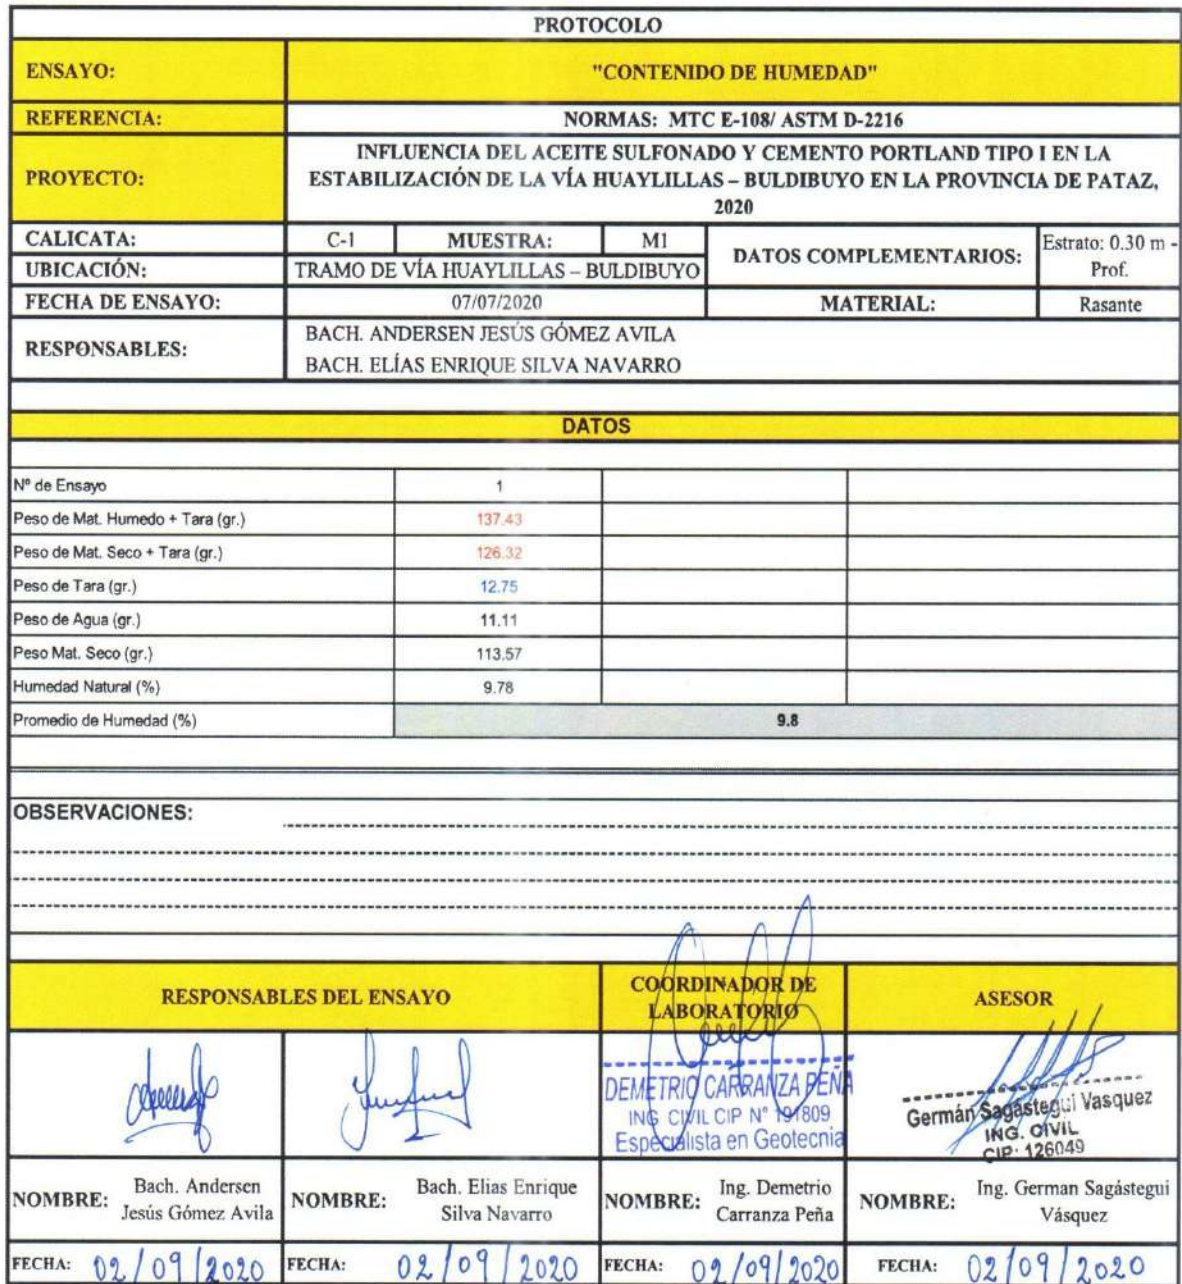 PROTOCOLO
ENSAYO: "CONTENIDO DE HUMEDAD"
REFERENCIA: NORMAS: MTC E-108/ ASTM D-2216
PROYECTO: INFLUENCIA DEL ACEITE SULFONADO Y CEMENTO PORTLAND TIPO I EN LA
ESTABILIZACIÓN DE LA VÍA HUAYLILLAS – BULDIBUYO EN LA PROVINCIA DE PATAZ,
2020
CALICATA: C-1 MUESTRA: M1 DATOS COMPLEMENTARIOS: Estrato: 0.30 m -
Prof.
UBICACIÓN: TRAMO DE VÍA HUAYLILLAS – BULDIBUYO
FECHA DE ENSAYO: 07/07/2020 MATERIAL: Rasante
RESPONSABLES: BACH. ANDERSEN JESÚS GÓMEZ AVILA
BACH. ELÍAS ENRIQUE SILVA NAVARRO
DATOS
Nº de Ensayo 1
Peso de Mat. Humedo + Tara (gr.) 137.43
Peso de Mat. Seco + Tara (gr.) 126.32
Peso de Tara (gr.) 12.75
Peso de Agua (gr.) 11.11
Peso Mat. Seco (gr.) 113.57
Humedad Natural (%) 9.78
Promedio de Humedad (%) 9.8
OBSERVACIONES:
RESPONSABLES DEL ENSAYO COORDINADOR DE LABORATORIO ASESOR
DEMETRIO CARRANZA PEÑA
ING. CIVIL CIP N° 191809
Especialista en Geotecnia
Germán Sagástegui Vasquez
ING. CIVIL
CIP: 126049
NOMBRE: Bach. Andersen Jesús Gómez Avila NOMBRE: Bach. Elias Enrique Silva Navarro NOMBRE: Ing. Demetrio Carranza Peña NOMBRE: Ing. German Sagástegui Vásquez
FECHA: 02/09/2020 FECHA: 02/09/2020 FECHA: 02/09/2020 FECHA: 02/09/2020